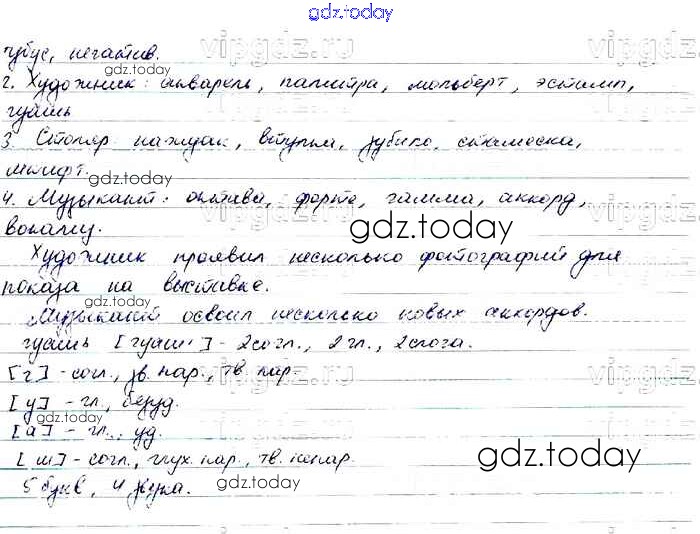 gdz.today
тубус, негатив.
2. Художник: акварель, палитра, мольберт, эстамп,
гуашь
3. Столяр: наждак, втулка, зубило, стамеска,
штифт.
4. Музыкант: октава, форте, гамма, аккорд,
вокализ.
Художник проявил несколько фотографий для
показа на выставке.
Музыкант освоил несколько новых аккордов.
гуашь [гуаш] - 2 согл., 2 гл., 2 слога.
[г] - согл., зв. пар., тв. пар.
[у] - гл., безуд.
[а] - гл., уд.
[ш] - согл., глух. пар., тв. непар.
5 букв, 4 звука.